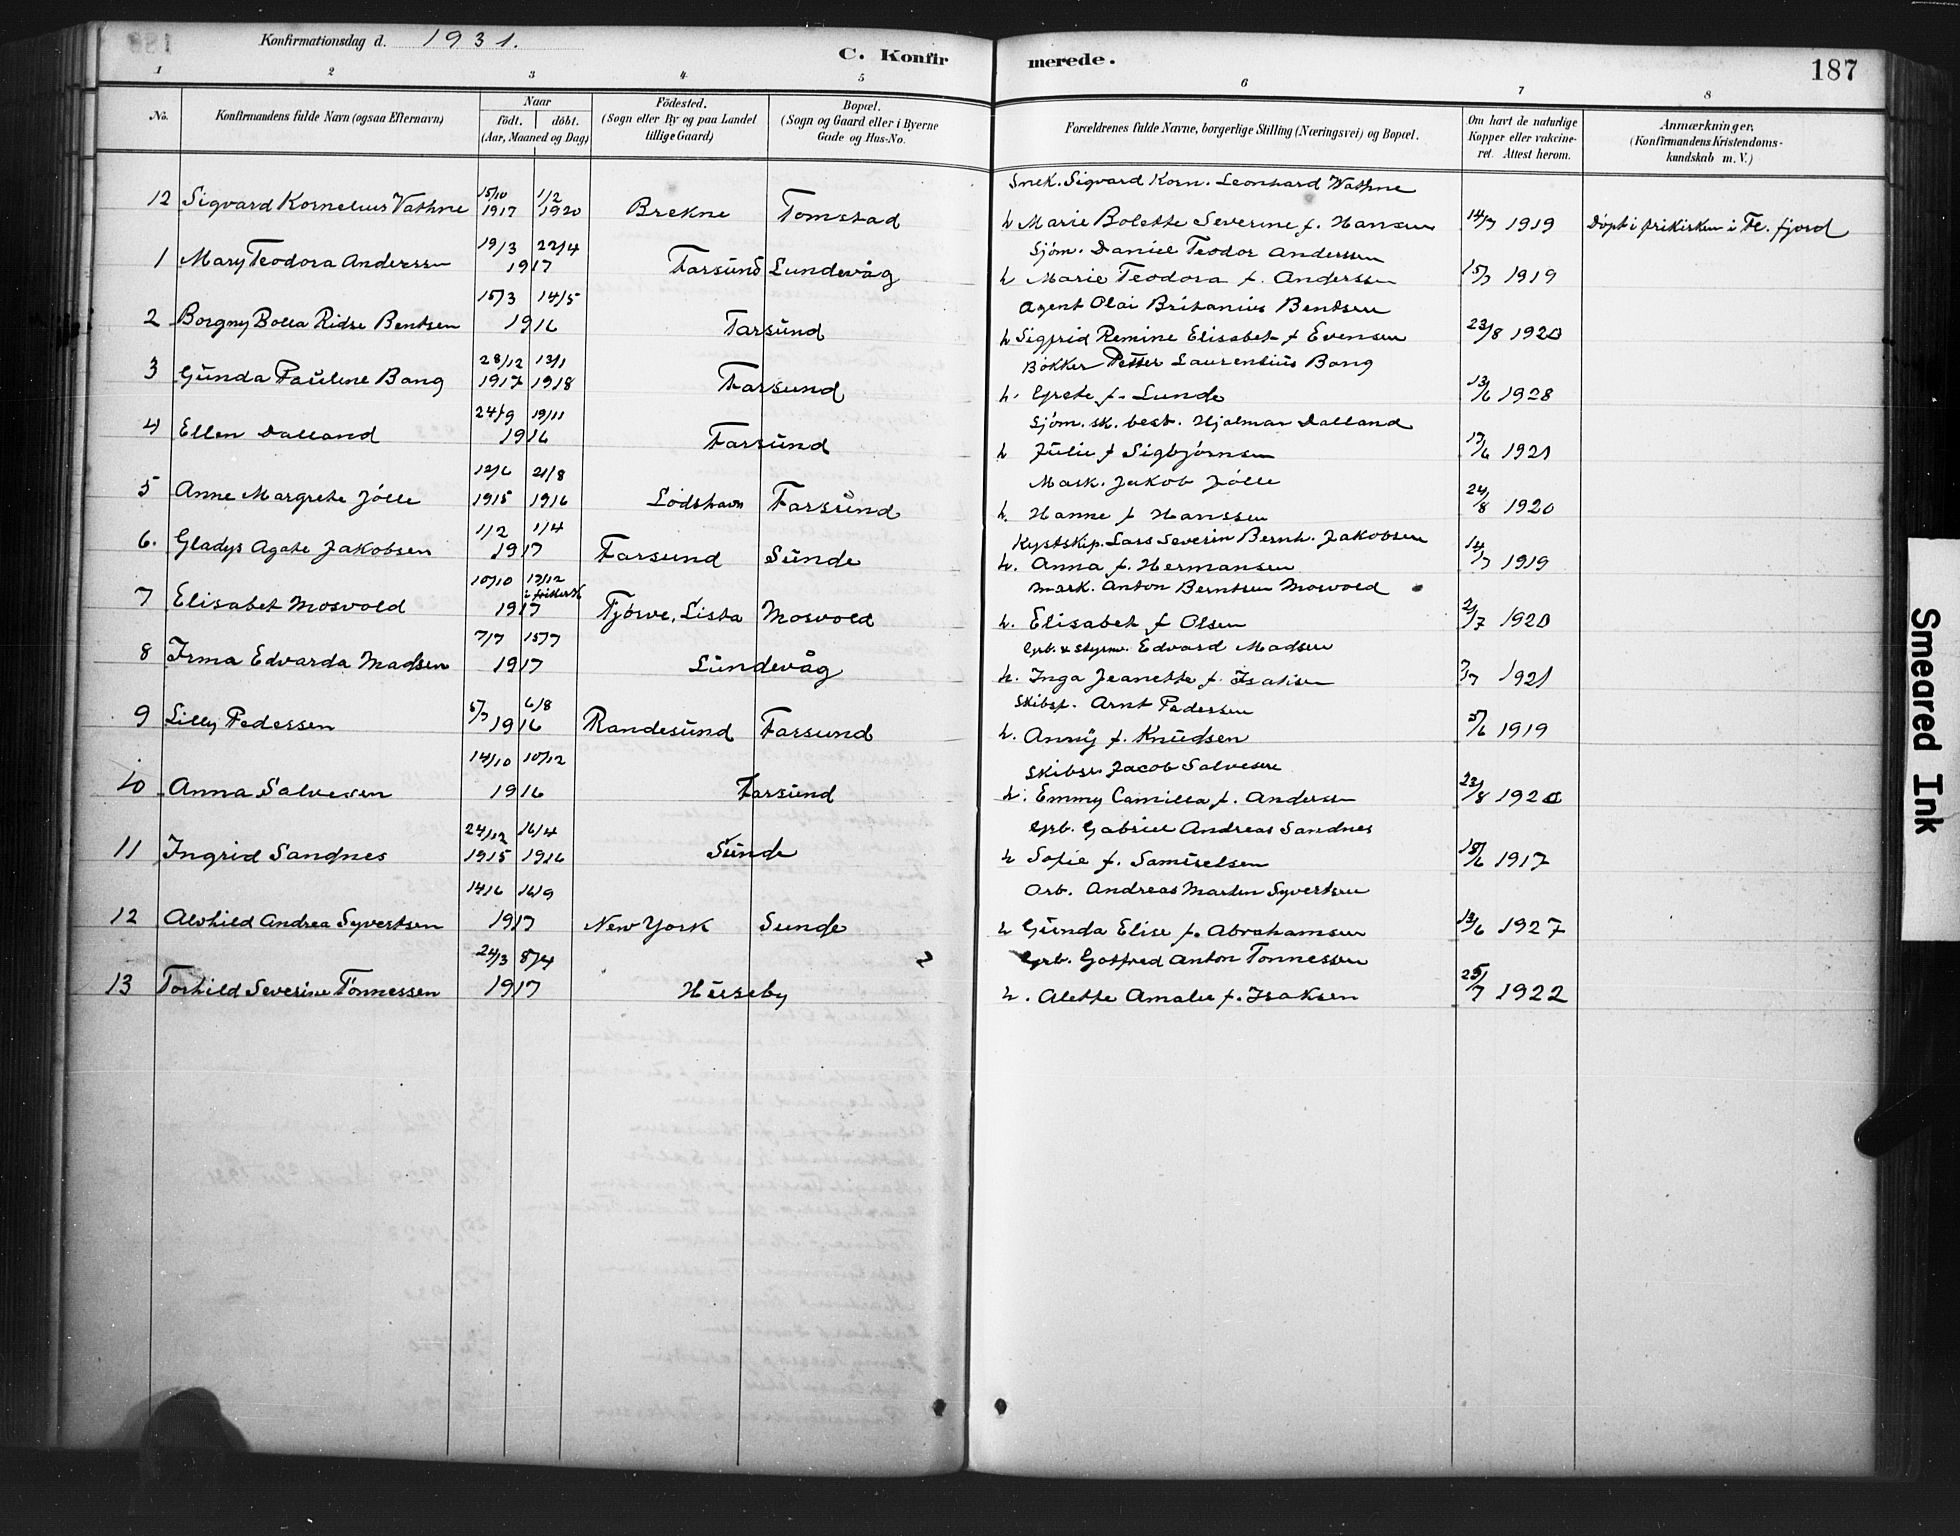 Konfirmationsdag d. 1931.
C. Konfirmerede.
187
1 2 3 4 5 6 7 8
No.
Konfirmandens fulde Navn (ogsaa Efternavn)
Naar
født. døbt.
(Aar, Maaned og Dag)
Fødested.
(Sogn eller By og paa Landet
tillige Gaard)
Bopæl.
(Sogn og Gaard eller i Byerne
Gade og Hus-No.
Forældrenes fulde Navne, borgerlige Stilling (Næringsvei) og Bopæl.
Om havt de naturlige
Kopper eller vakcine-
ret. Attest herom.
Anmærkninger,
(Konfirmandens Kristendoms-
kundskab m. V.)
Snek. Sigvard Korn. Leonhard Vathne
12 Sigvard Kornelius Vathne 15/10 1917 1/2 1920 Brekne Tomstad
h Marie Bolette Severine f. Hansen 14/7 1919 Døpt i frikirken i Fl. fjord
Sjøm. Daniel Teodor Anderssen
1 Mary Teodora Anderssen 19/3 22/4 1917 Farsund Lundevåg
h Marie Teodora f. Anderssen 15/7 1919
Agent Olai Britanius Bentsen
2 Borgny Bolla Ridse Bentsen 15/3 14/5 1916 Farsund
h Sigfrid Remine Elisabet f Evensen 23/8 1920
Bøkker Petter Laurentius Bang
3 Gunda Pauline Bang 28/12 1917 13/1 1918 Farsund
h. Grete f. Lunde 13/6 1928
Sjøm. sk. best. Hjalmar Dalland
4 Ellen Dalland 24/9 19/11 1916 Farsund
h Julie f Sigbjørnsen 17/6 1921
Mask. Jakob Jølle
5 Anne Margrete Jølle 12/6 1915 21/8 1916 Lodshavn Farsund
h. Hanne f Hanssen 24/8 1920
Kystskip. Lars Severin Bernh. Jakobsen
6. Gladys Agate Jakobsen 1/2 1/4 1917 Farsund Sunde
h. Anna f. Hermansen 14/7 1919
Mask. Anton Berntsen Mosvold
7 Elisabet Mosvold 10/10 17/12 1917 Fjørve, Lista Mosvold
h. Elisabet f Olsen 2/7 1920
Grb. & styrm. Edvard Madsen
8 Irma Edvarda Madsen 7/7 15/7 1917 Lundevåg
h. Inga Jeanette f. Isaksen 7/7 1921
Skibsf. Arnt Pedersen
9 Lilly Pedersen 5/7 6/8 1916 Randesund Farsund
h. Anny f. Knudsen 5/6 1919
Skibsr Jacob Salvesen
10 Anna Salvesen 14/10 10/12 1916 Farsund
h. Emmy Camilla f. Anderssen 23/8 1920
Grb. Gabriel Andreas Sandnes
11 Ingrid Sandnes 24/12 1915 16/4 1916 Sunde
h Sofie f. Samuelsen 18/6 1917
Arb. Andreas Martin Syvertsen
12 Alvhild Andrea Syvertsen 14/6 16/9 1917 New York Sunde
h Gunda Elise f. Abrahamsen 13/6 1927
Grb. Gotfred Anton Tønnessen
13 Torhild Severine Tønnessen 24/3 8/4 1917 Huseby
h. Alette Amalie f. Isaksen 25/7 1922
Smeared Ink